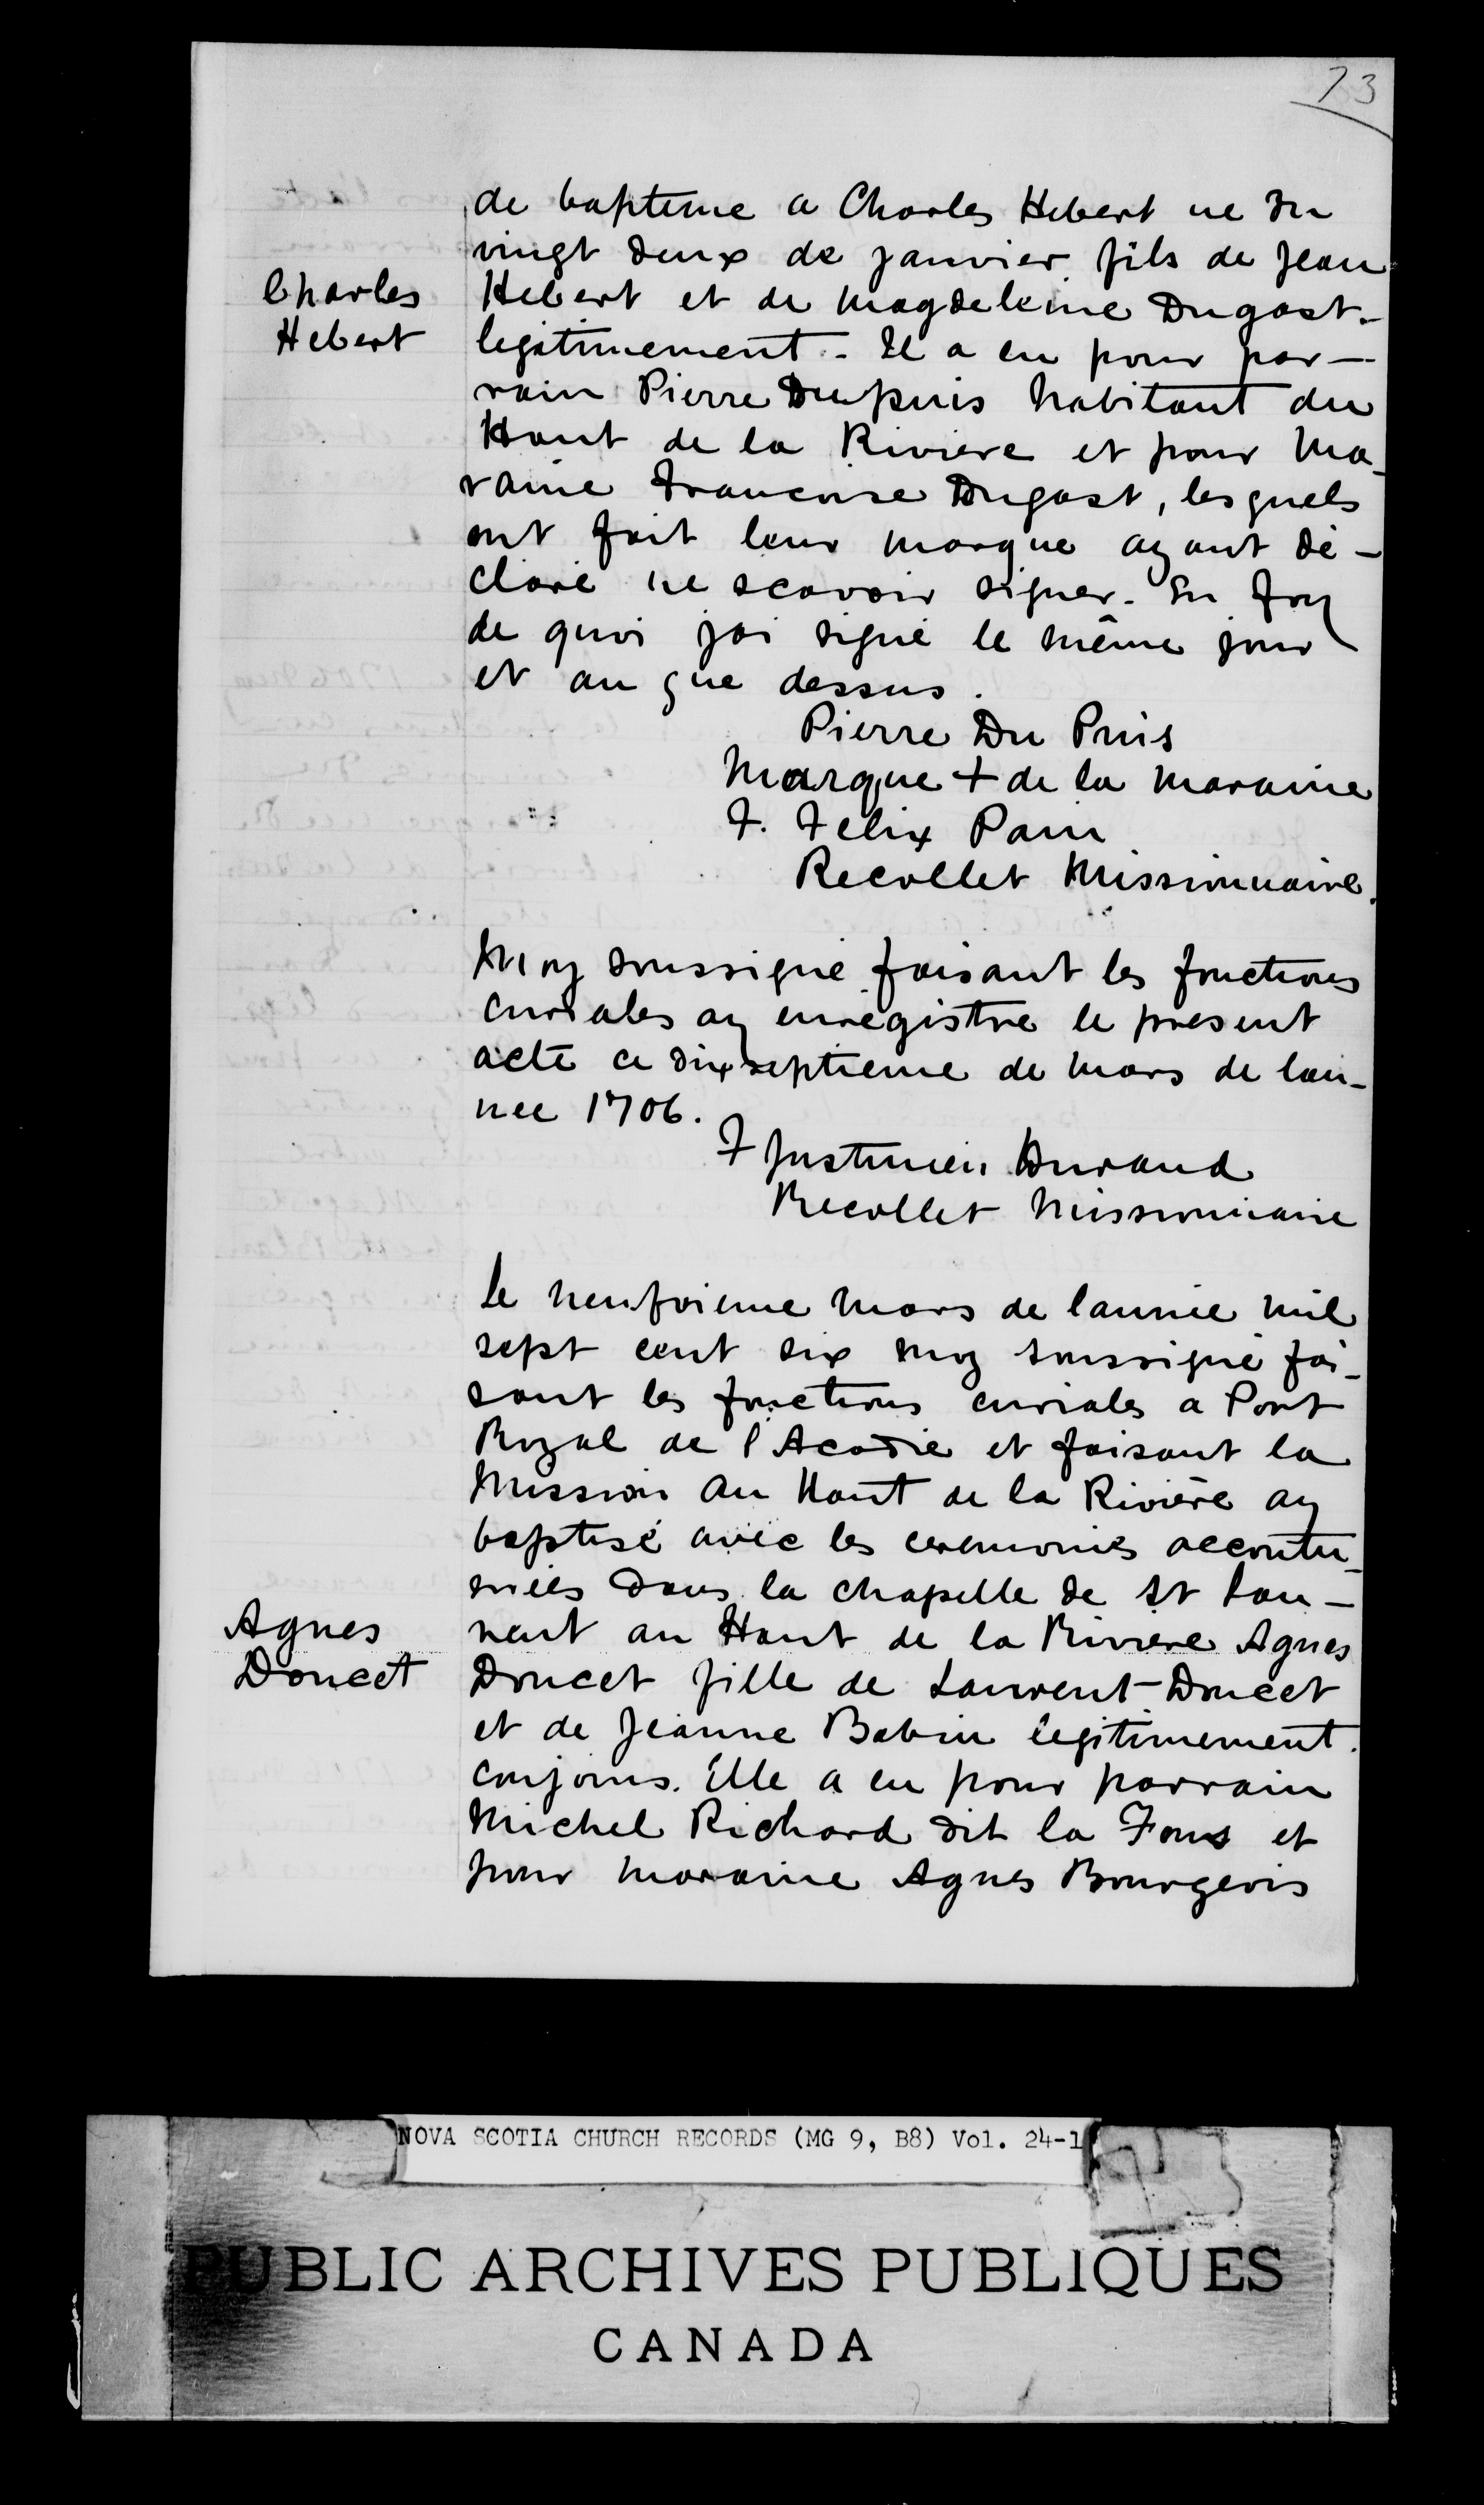 73
de baptême a Charles Hebert ne du
vingt deux de janvier fils de Jean
Charles
Hebert
Hebert et de Magdeleine Dugast
legitimement - Il a eu pour par-
rain Pierre Dupuis habitant du
Haut de la Riviere et pour ma-
raine Francoise Dugast, lesquels
ont fait leur marque ayant dé-
claré ne scavoir signer. En foy
de quoi jai signé le même jour
et an que dessus.
Pierre Du Puis
Marque + de la maraine
F. Felix Pain
Recollet Missionnaire.
Moy soussigné faisant les fonctions
curiales ay enregistre le present
acte ce dixseptieme de mars de lan-
nee 1706.
F Justinien Durand
Recollet Missionnaire
Le neufvieme mars de lannée mil
sept cent six moy soussigné fai-
sant les fonctions curiales a Port
Royal de l'Acadie et faisant la
Mission au Haut de la Rivière ay
baptisé avec les ceremonies accoutu-
mées dans la chapelle de St Lau-
Agnes
Doucet
rent au Haut de la Riviere Agnes
Doucet fille de Laurent Doucet
et de Jeanne Babin legitimement
conjoins. Elle a eu pour parrain
Michel Richard dit la Fons et
pour maraine Agnes Bourgeois
NOVA SCOTIA CHURCH RECORDS (MG 9, B8) Vol. 24-1
PUBLIC ARCHIVES PUBLIQUES
CANADA